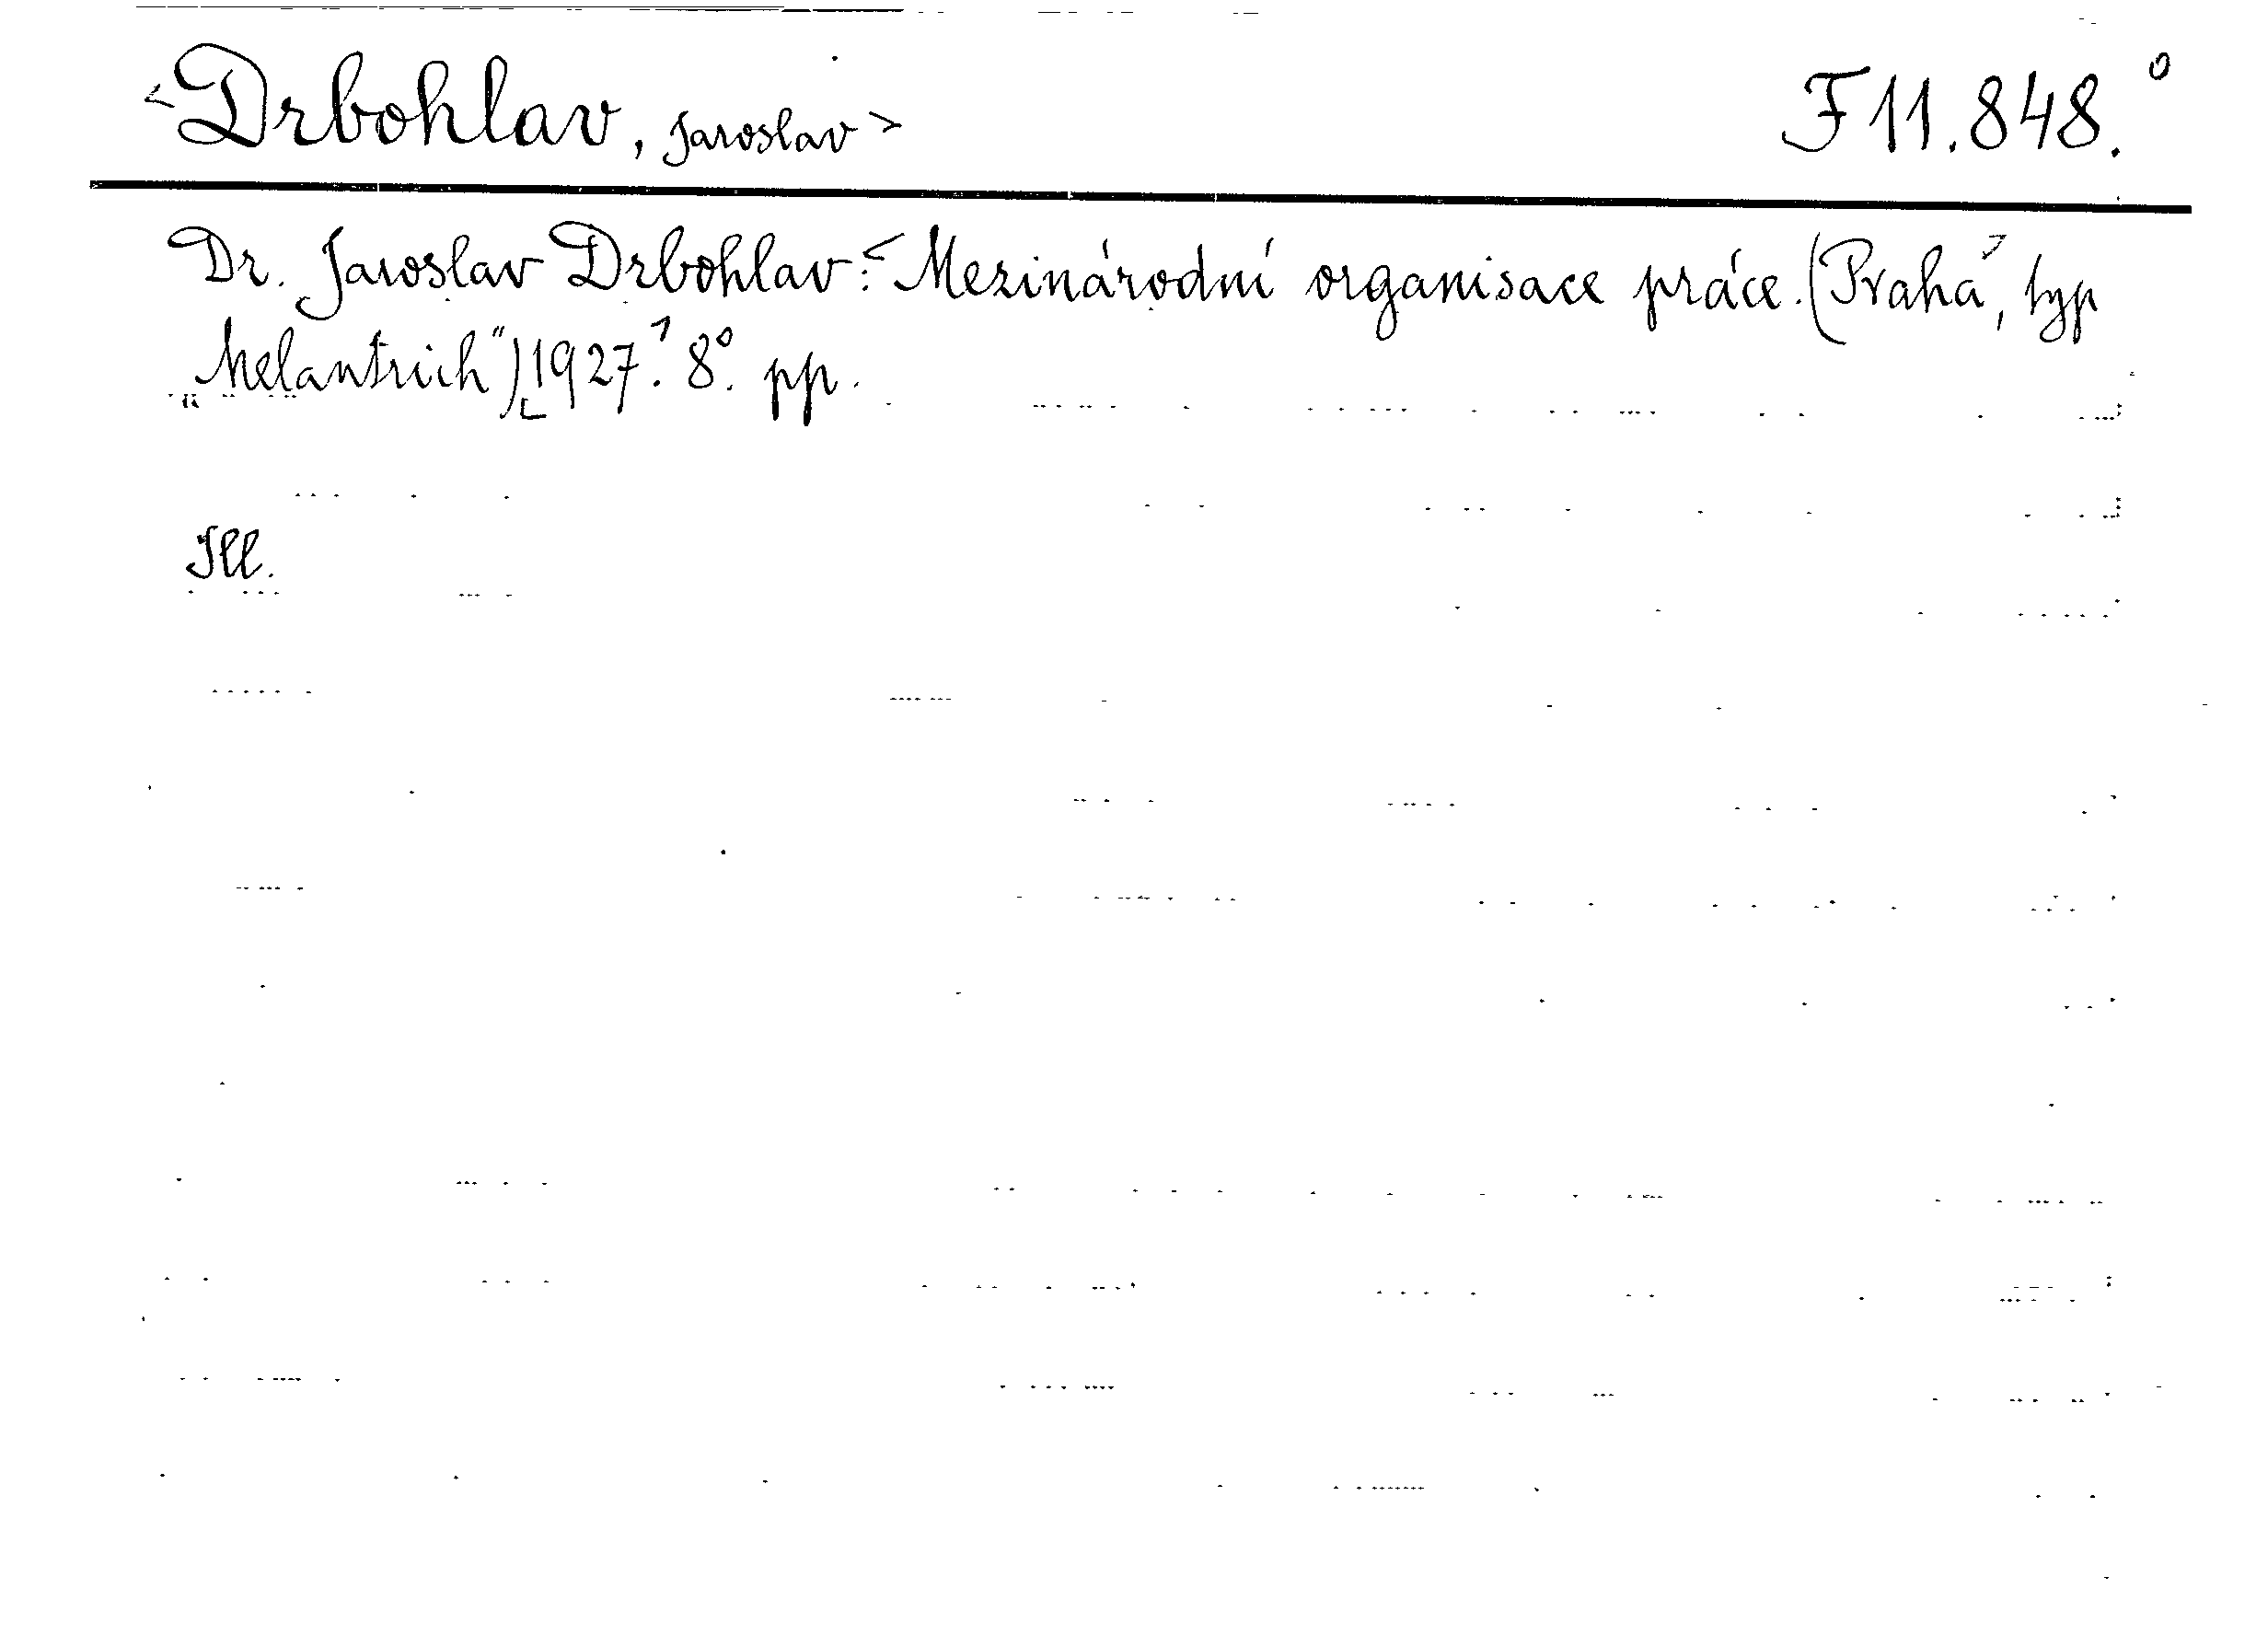 <Drbohlav, Jaroslav> F 11.848.°
Dr. Jaroslav Drbohlav:<Mezinárodní organisace práce. (Praha>, typ
„Melantrich“) [1927.] 8°. pp.
Ill.